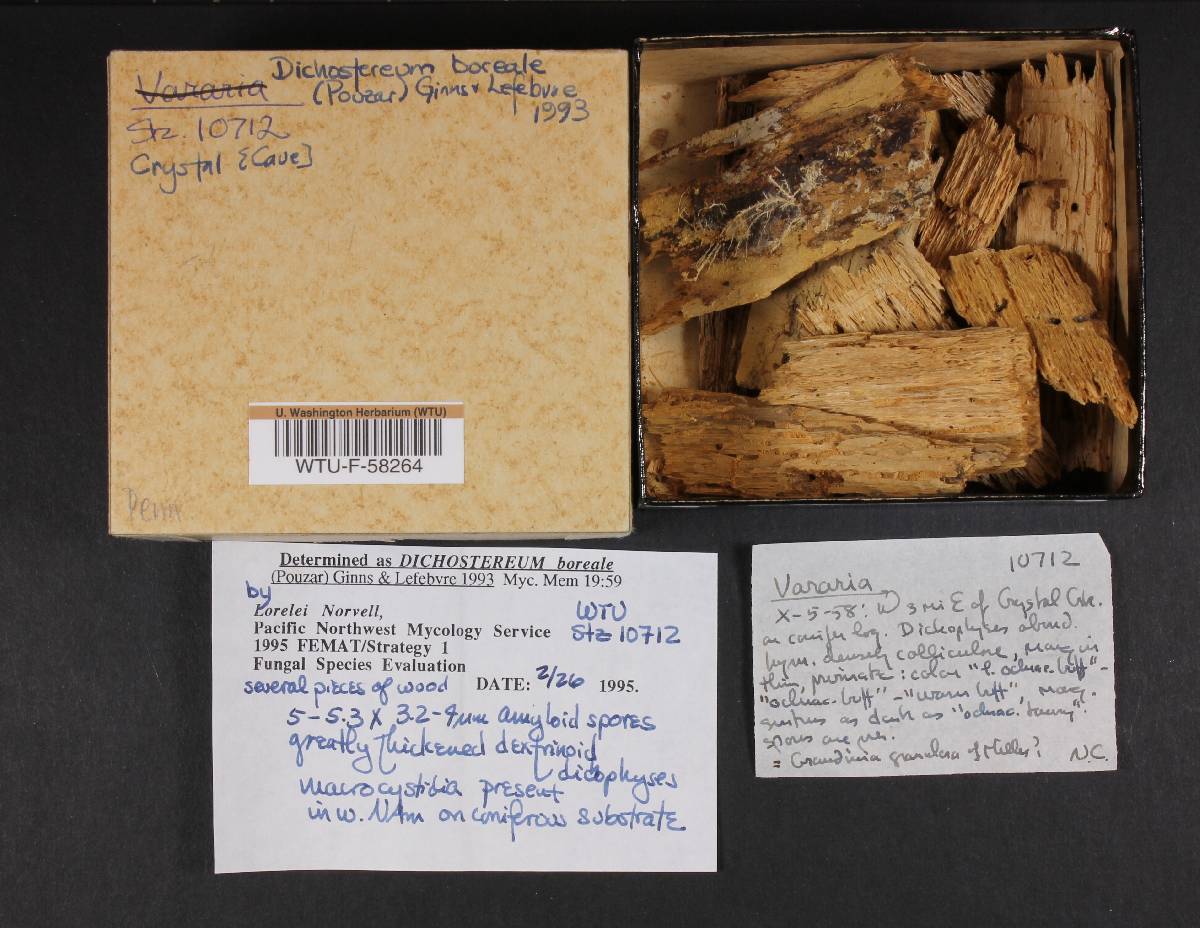 Vararia Dichostereum boreale
(Pouzar) Ginns & Lefebvre
1993
Stz. 10712
Crystal [Cave]
U. Washington Herbarium (WTU)
WTU-F-58264
Determined as DICHOSTEREUM boreale
(Pouzar) Ginns & Lefebvre 1993 Myc. Mem 19:59
by
Lorelei Norvell, WTU
Pacific Northwest Mycology Service Stz 10712
1995 FEMAT/Strategy 1
Fungal Species Evaluation
several pieces of wood DATE: 2/26 1995.
5-5.3 X 3.2-4µm amyloid spores
greatly thickened dextrinoid
dicophyses
macrocystidia present
in w. NAm on coniferous substrate
10712
Vararia
X-5-58: 3 mi E of Crystal Crk.
on conifer log. Dichophyses abund.
hym. densely colliculose, margin
thin, : color "l. ochrac. buff"-
"ochrac. buff"-"warm buff", marg.
as dark as "ochrac. tawny".
spores are
= Grandinia of Miller? N.C.